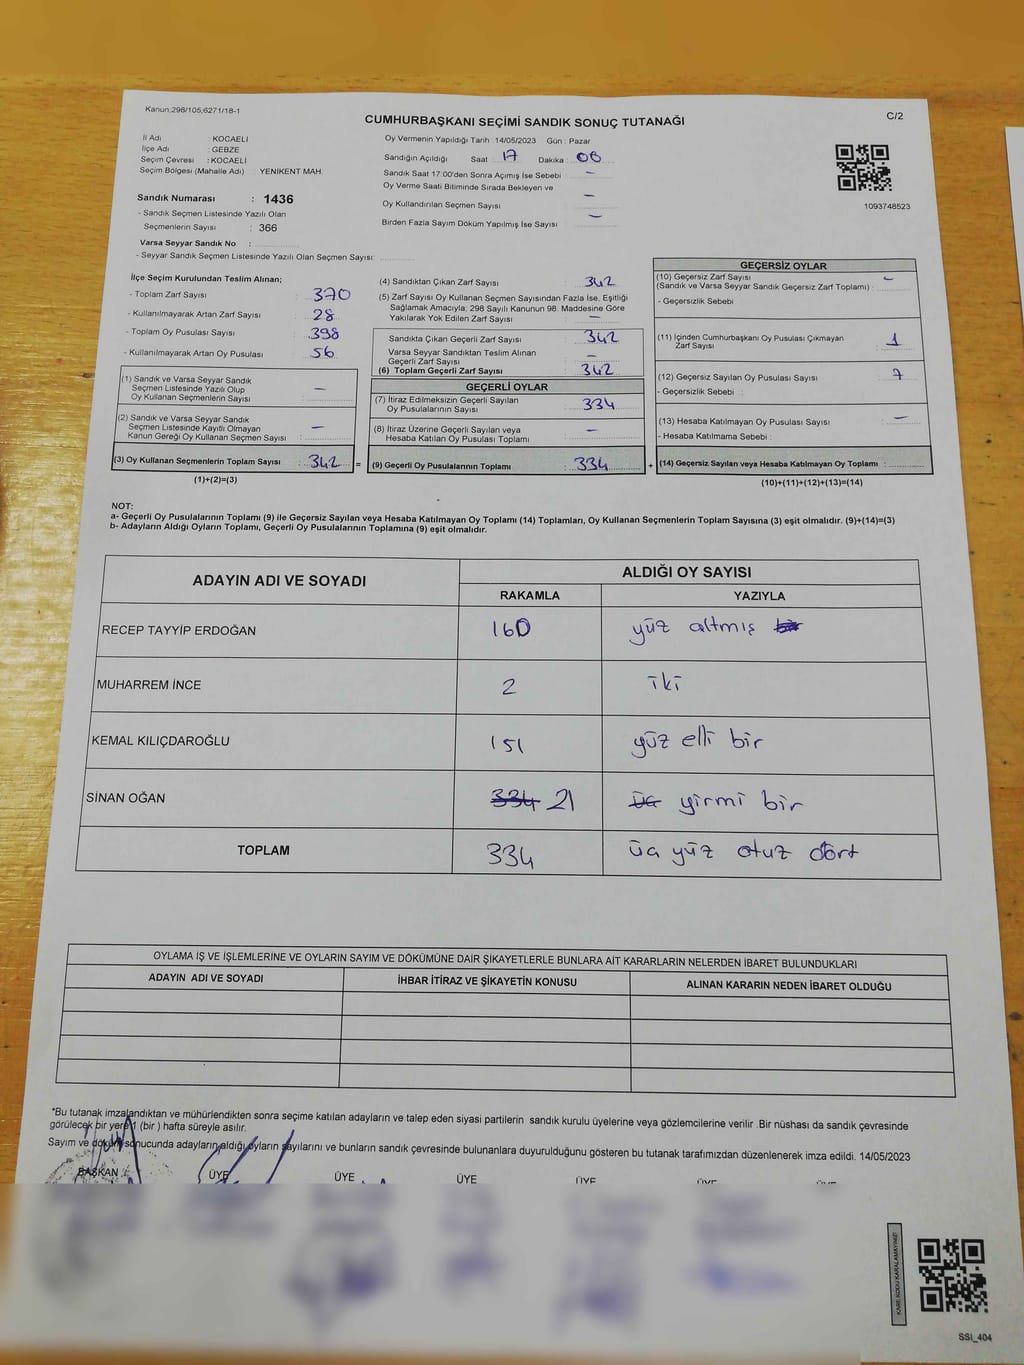 Kanun;298/105,6271/18-1
C/2
CUMHURBAŞKANI SEÇİMİ SANDIK SONUÇ TUTANAĞI
İl Adı : KOCAELİ
İlçe Adı : GEBZE
Seçim Çevresi : KOCAELİ
Seçim Bölgesi (Mahalle Adı) YENİKENT MAH.
Sandık Numarası : 1436
- Sandık Seçmen Listesinde Yazılı Olan
Seçmenlerin Sayısı : 366
Varsa Seyyar Sandık No :
- Seyyar Sandık Seçmen Listesinde Yazılı Olan Seçmen Sayısı:
Oy Vermenin Yapıldığı Tarih :14/05/2023 Gün : Pazar
Sandığın Açıldığı Saat : 17 Dakika : 08
Sandık Saat 17:00'den Sonra Açımış İse Sebebi : -
Oy Verme Saati Bitiminde Sırada Bekleyen ve
Oy Kullandırılan Seçmen Sayısı : -
Birden Fazla Sayım Döküm Yapılmış İse Sayısı : -
1093748523
İlçe Seçim Kurulundan Teslim Alınan;
- Toplam Zarf Sayısı : 370
- Kullanılmayarak Artan Zarf Sayısı : 28
- Toplam Oy Pusulası Sayısı : 398
- Kullanılmayarak Artan Oy Pusulası : 56
(1) Sandık ve Varsa Seyyar Sandık
Seçmen Listesinde Yazılı Olup
Oy Kullanan Seçmenlerin Sayısı : -
(2) Sandık ve Varsa Seyyar Sandık
Seçmen Listesinde Kayıtlı Olmayan
Kanun Gereği Oy Kullanan Seçmen Sayısı : -
(3) Oy Kullanan Seçmenlerin Toplam Sayısı : 342 =
(1)+(2)=(3)
(4) Sandıktan Çıkan Zarf Sayısı : 342
(5) Zarf Sayısı Oy Kullanan Seçmen Sayısından Fazla İse, Eşitliği
Sağlamak Amacıyla; 298 Sayılı Kanunun 98. Maddesine Göre
Yakılarak Yok Edilen Zarf Sayısı : -
Sandıkta Çıkan Geçerli Zarf Sayısı : 342
Varsa Seyyar Sandıktan Teslim Alınan
Geçerli Zarf Sayısı : -
(6) Toplam Geçerli Zarf Sayısı : 342
GEÇERLİ OYLAR
(7) İtiraz Edilmeksizin Geçerli Sayılan
Oy Pusulalarının Sayısı : 334
(8) İtiraz Üzerine Geçerli Sayılan veya
Hesaba Katılan Oy Pusulası Toplamı : -
(9) Geçerli Oy Pusulalarının Toplamı : 334 +
GEÇERSİZ OYLAR
(10) Geçersiz Zarf Sayısı -
(Sandık ve Varsa Seyyar Sandık Geçersiz Zarf Toplamı) :
- Geçersizlik Sebebi
(11) İçinden Cumhurbaşkanı Oy Pusulası Çıkmayan
Zarf Sayısı : 1
(12) Geçersiz Sayılan Oy Pusulası Sayısı : 7
- Geçersizlik Sebebi :
(13) Hesaba Katılmayan Oy Pusulası Sayısı : -
- Hesaba Katılmama Sebebi :
(14) Geçersiz Sayılan veya Hesaba Katılmayan Oy Toplamı :
(10)+(11)+(12)+(13)=(14)
NOT:
a- Geçerli Oy Pusulalarının Toplamı (9) ile Geçersiz Sayılan veya Hesaba Katılmayan Oy Toplamı (14) Toplamları, Oy Kullanan Seçmenlerin Toplam Sayısına (3) eşit olmalıdır. (9)+(14)=(3)
b- Adayların Aldığı Oyların Toplamı, Geçerli Oy Pusulalarının Toplamına (9) eşit olmalıdır.
ADAYIN ADI VE SOYADI ALDIĞI OY SAYISI
RAKAMLA YAZIYLA
RECEP TAYYİP ERDOĞAN 160 yüz altmış bir
MUHARREM İNCE 2 iki
KEMAL KILIÇDAROĞLU 151 yüz elli bir
SİNAN OĞAN 334 21 üç yirmi bir
TOPLAM 334 üç yüz otuz dört
OYLAMA İŞ VE İŞLEMLERİNE VE OYLARIN SAYIM VE DÖKÜMÜNE DAİR ŞİKAYETLERLE BUNLARA AİT KARARLARIN NELERDEN İBARET BULUNDUKLARI
ADAYIN ADI VE SOYADI İHBAR İTİRAZ VE ŞİKAYETİN KONUSU ALINAN KARARIN NEDEN İBARET OLDUĞU
*Bu tutanak imzalandıktan ve mühürlendikten sonra seçime katılan adayların ve talep eden siyasi partilerin sandık kurulu üyelerine veya gözlemcilerine verilir .Bir nüshası da sandık çevresinde
görülecek bir yere 1 (bir ) hafta süreyle asılır.
Sayım ve döküm sonucunda adayların aldığı oyların sayılarını ve bunların sandık çevresinde bulunanlara duyurulduğunu gösteren bu tutanak tarafımızdan düzenlenerek imza edildi. 14/05/2023
BAŞKAN ÜYE ÜYE ÜYE ÜYE ÜYE ÜYE
KARE KODU KARALAMAYINIZ!
SSİ_404